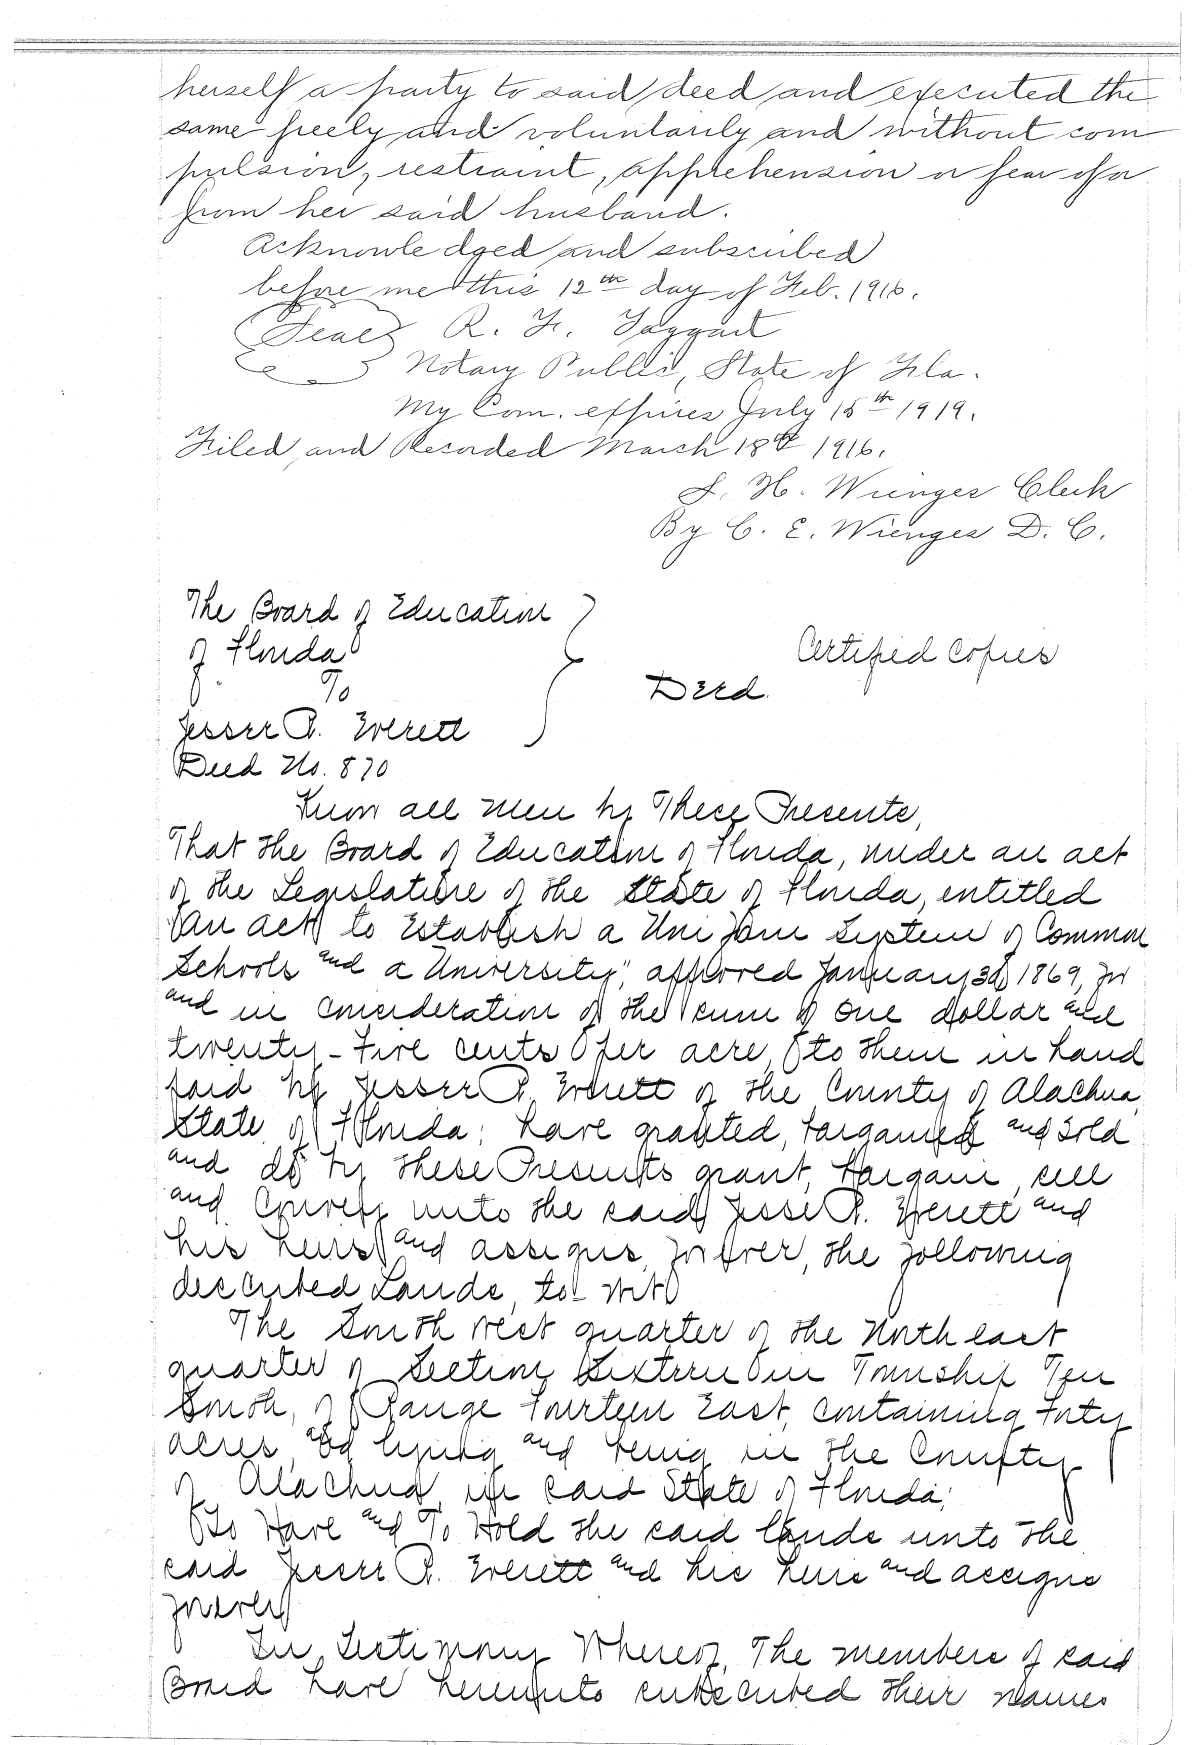 herself a party to said deed and executed the
same freely and voluntarily and without com
pulsion, restraint, apprehension or fear of or
from her said husband.
Acknowledged and subscribed
before me this 12th day of Feb. 1916.
Seal R. F. Taggart
Notary Public, State of Fla.
My Com. expires July 15th 1919.
Filed and Recorded March 18th 1916.
S. H. Wienges Clerk
By C. E. Wienges D. C.
The Board of Education
of Florida
To
Jesse P. Everett
Deed.
Certified Copies
Deed No. 870
Know all Men by These Presents,
That the Board of Education of Florida, under an act
of the Legislature of the State of Florida, entitled
"An act to Establish a Uniform System of Common
Schools and a University", approved January 30, 1869, for
and in consideration of the sum of one dollar and
twenty-five cents per acre, to them in hand
paid by Jesse P. Everett of the County of Alachua,
State of Florida; have granted, bargained and sold
and do by these Presents grant, bargain, sell
and Convey unto the said Jesse P. Everett and
his heirs and assigns, forever, the following
described Lands, to-wit
The South West quarter of the North east
quarter of Section Sixteen in Township Ten
South, of Range fourteen East, containing forty
acres, and lying and being in the County
of Alachua, in said State of Florida;
To Have and To Hold the said lands unto the
said Jesse P. Everett and his heirs and assigns
forever
In Testimony Whereof, The members of said
Board have hereunto subscribed their names